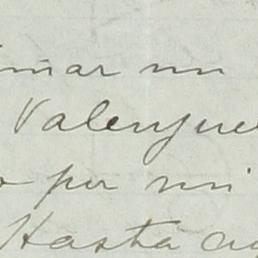 mar un
Valenzuel
por mi
Hasta